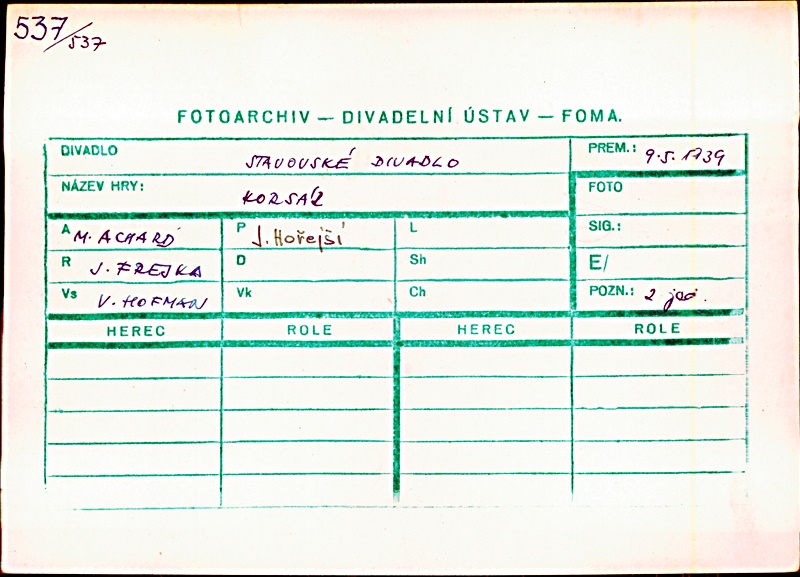 537/537
FOTOARCHIV — DIVADELNÍ ÚSTAV — FOMA.
DIVADLO STAVOVSKÉ DIVADLO PREM.: 9.5.1939
NÁZEV HRY: KORSÁR FOTO
A M. ACHARD P J. Hořejší L SIG.:
R J. FREJKA D Sh E/
Vs V. HOFMAN Vk Ch POZN.: 2 jed.
HEREC ROLE HEREC ROLE